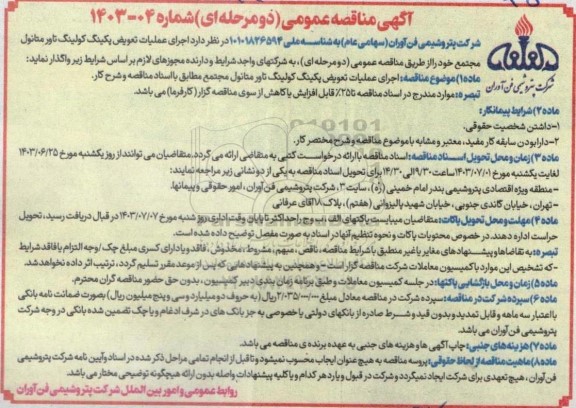 آگهی مناقصه عمومی (دو مرحله ای) شماره ۰۴-۱۴۰۳
شرکت پتروشیمی فن آوران (سهامی عام) به شناسه ملی ۱۰۱۰۱۸۲۶۵۹۴ در نظر دارد اجرای عملیات تعویض پکینگ کولینگ تاور متانول
مجتمع خود را از طریق مناقصه عمومی (دو مرحله ای)، به شرکتهای واجد شرایط و دارنده مجوزهای لازم بر اساس شرایط زیر واگذار نماید:
شرکت پتروشیمی فن آوران
ماده ۱) موضوع مناقصه: اجرای عملیات تعویض پکینگ کولینگ تاور متانول مجتمع مطابق با اسناد مناقصه و شرح کار.
تبصره: موارد مندرج در اسناد مناقصه تا ۲۵٪ قابل افزایش یا کاهش از سوی مناقصه گزار (کارفرما) می باشد.
ماده ۲) شرایط پیمانکار:
۱-داشتن شخصیت حقوقی.
۲-دارا بودن سابقه کار مفید، معتبر و مشابه با موضوع مناقصه و شرح مختصر کار.
ماده ۳) زمان و محل تحویل اسناد مناقصه: اسناد مناقصه با ارائه درخواست کتبی به متقاضی ارائه می گردد. متقاضیان می توانند از روز یکشنبه مورخ ۱۴۰۳/۰۶/۲۵
لغایت یکشنبه مورخ ۱۴۰۳/۰۷/۰۱ ساعت ۹/۳۰ الی ۱۴/۳۰ برای تحویل اسناد مناقصه به یکی از دو نشانی زیر مراجعه نمایند:
-منطقه ویژه اقتصادی پتروشیمی بندر امام خمینی (ره)، سایت ۳، شرکت پتروشیمی فن آوران، امور حقوقی و پیمانها.
-تهران، خیابان گاندی جنوبی، خیابان شهید پالیزوانی (هفتم)، پلاک ۱۸ آقای عرفانی
ماده ۴) مهلت و محل تحویل پاکات: متقاضیان میبایست پاکتهای الف، ب و ج را حداکثر تا پایان وقت اداری روز شنبه مورخ ۱۴۰۳/۰۷/۰۷ در قبال دریافت رسید، تحویل
حراست اداره دهند. در خصوص محتویات پاکات و نحوه تنظیم آنها در اسناد به صورت مفصل توضیح داده شده است.
تبصره: به تقاضاها و پیشنهادهای مغایر یا غیر منطبق با شرایط مناقصه، ناقص، مبهم، مشروط، مخدوش، فاقد و یا دارای کسری مبلغ چک / وجه التزام یا فاقد شرایط
-که تشخیص این موارد با کمیسیون معاملات شرکت مناقصه گزار است - و همچنین به پیشنهادهایی که پس از موعد مقرر تسلیم گردد، ترتیب اثر داده نخواهد شد.
ماده ۵) زمان و محل بازگشایی پاکتها: در جلسه کمیسیون معاملات و طبق برنامه زمان بندی دبیر کمیسیون، بدون حق حضور مناقصه گران محترم.
ماده ۶) سپرده شرکت در مناقصه: سپرده شرکت در مناقصه معادل مبلغ ۲/۰۳۵/۰۰۰/۰۰۰ ریال (به حروف دو میلیارد و سی و پنج میلیون ریال) بصورت ضمانت نامه بانکی
با اعتبار سه ماهه و قابل تمدید و بدون قید و شرط صادره از بانکهای دولتی یا خصوصی به جز بانک های در شرف ادغام و یا چک تضمین شده بانکی در وجه شرکت
پتروشیمی فن آوران می باشد.
ماده ۷) هزینه های جنبی: چاپ آگهی ها و هزینه های جنبی به عهده برنده ی مناقصه می باشد.
ماده ۸) ماهیت مناقصه از لحاظ حقوقی: پروسه مناقصه به هیچ عنوان ایجاب محسوب نمیشود و تا قبل از انجام تمامی مراحل ذکر شده در اسناد و آیین نامه شرکت پتروشیمی
فن آوران، هیچ تعهدی برای شرکت ایجاد نمیکردد و شرکت در قبول و یا رد هر کدام و یا کلیه پیشنهادات واصله بدون ارائه هیچگونه توضیحی مختار می باشد.
روابط عمومی و امور بین الملل شرکت پتروشیمی فن آوران